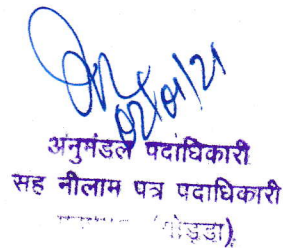 02/01/21
अनुमंडल पदाधिकारी
सह नीलाम पत्र पदाधिकारी
(गोड्डा)